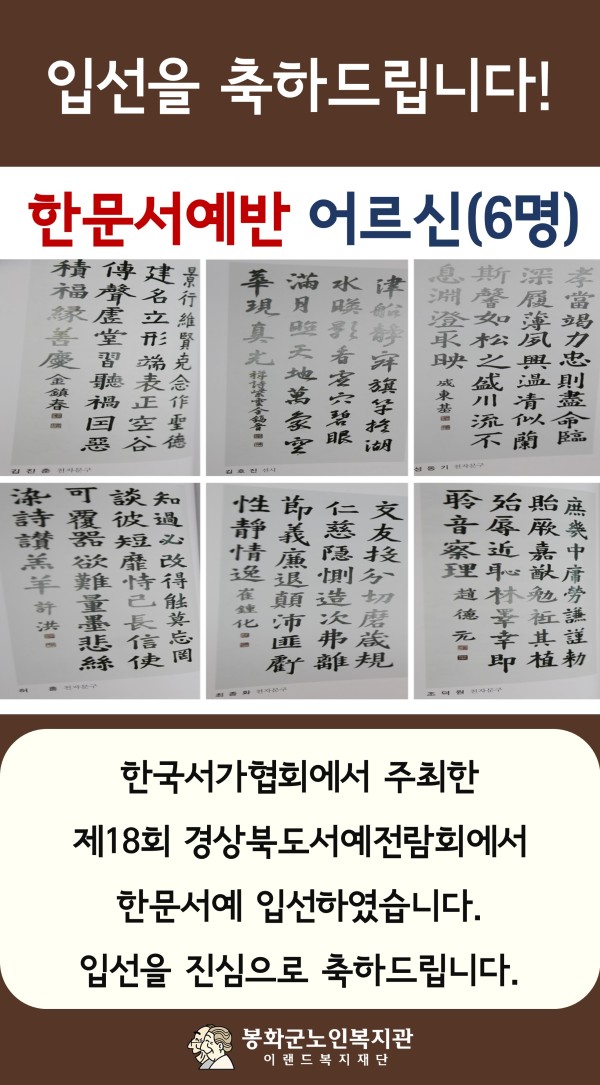 입선을 축하드립니다!
한문서예반 어르신(6명)
景行維賢克念作聖德
建名立形端表正空谷
傳聲虛堂習聽禍因惡
積福緣善慶 金鎭春
김진춘 천자문구
津船靜 旗竿 湖
水暎影看空穴碧眼
滿月照天地萬象空
華現真光 禪詩
김호진
孝當竭力忠則盡命臨
深履薄夙興温凊似蘭
斯馨如松之盛川流不
息淵澄取映 成東基
성동기 천자문구
知過必改得能莫忘罔
談彼短靡恃己長信使
可覆器欲難量墨悲絲
染詩讚羔羊 許洪
허홍 천자문구
交友投分切磨箴規
仁慈隱惻造次弗離
節義廉退顛沛匪虧
性靜情逸 崔鍾化
최종화 천자문구
庶幾中庸勞謙謹勅
貽厥嘉猷勉祗其植
殆辱近恥林皐幸即
聆音察理 趙德元
조덕원 천자문구
한국서가협회에서 주최한
제18회 경상북도서예전람회에서
한문서예 입선하였습니다.
입선을 진심으로 축하드립니다.
봉화군노인복지관
이랜드복지재단